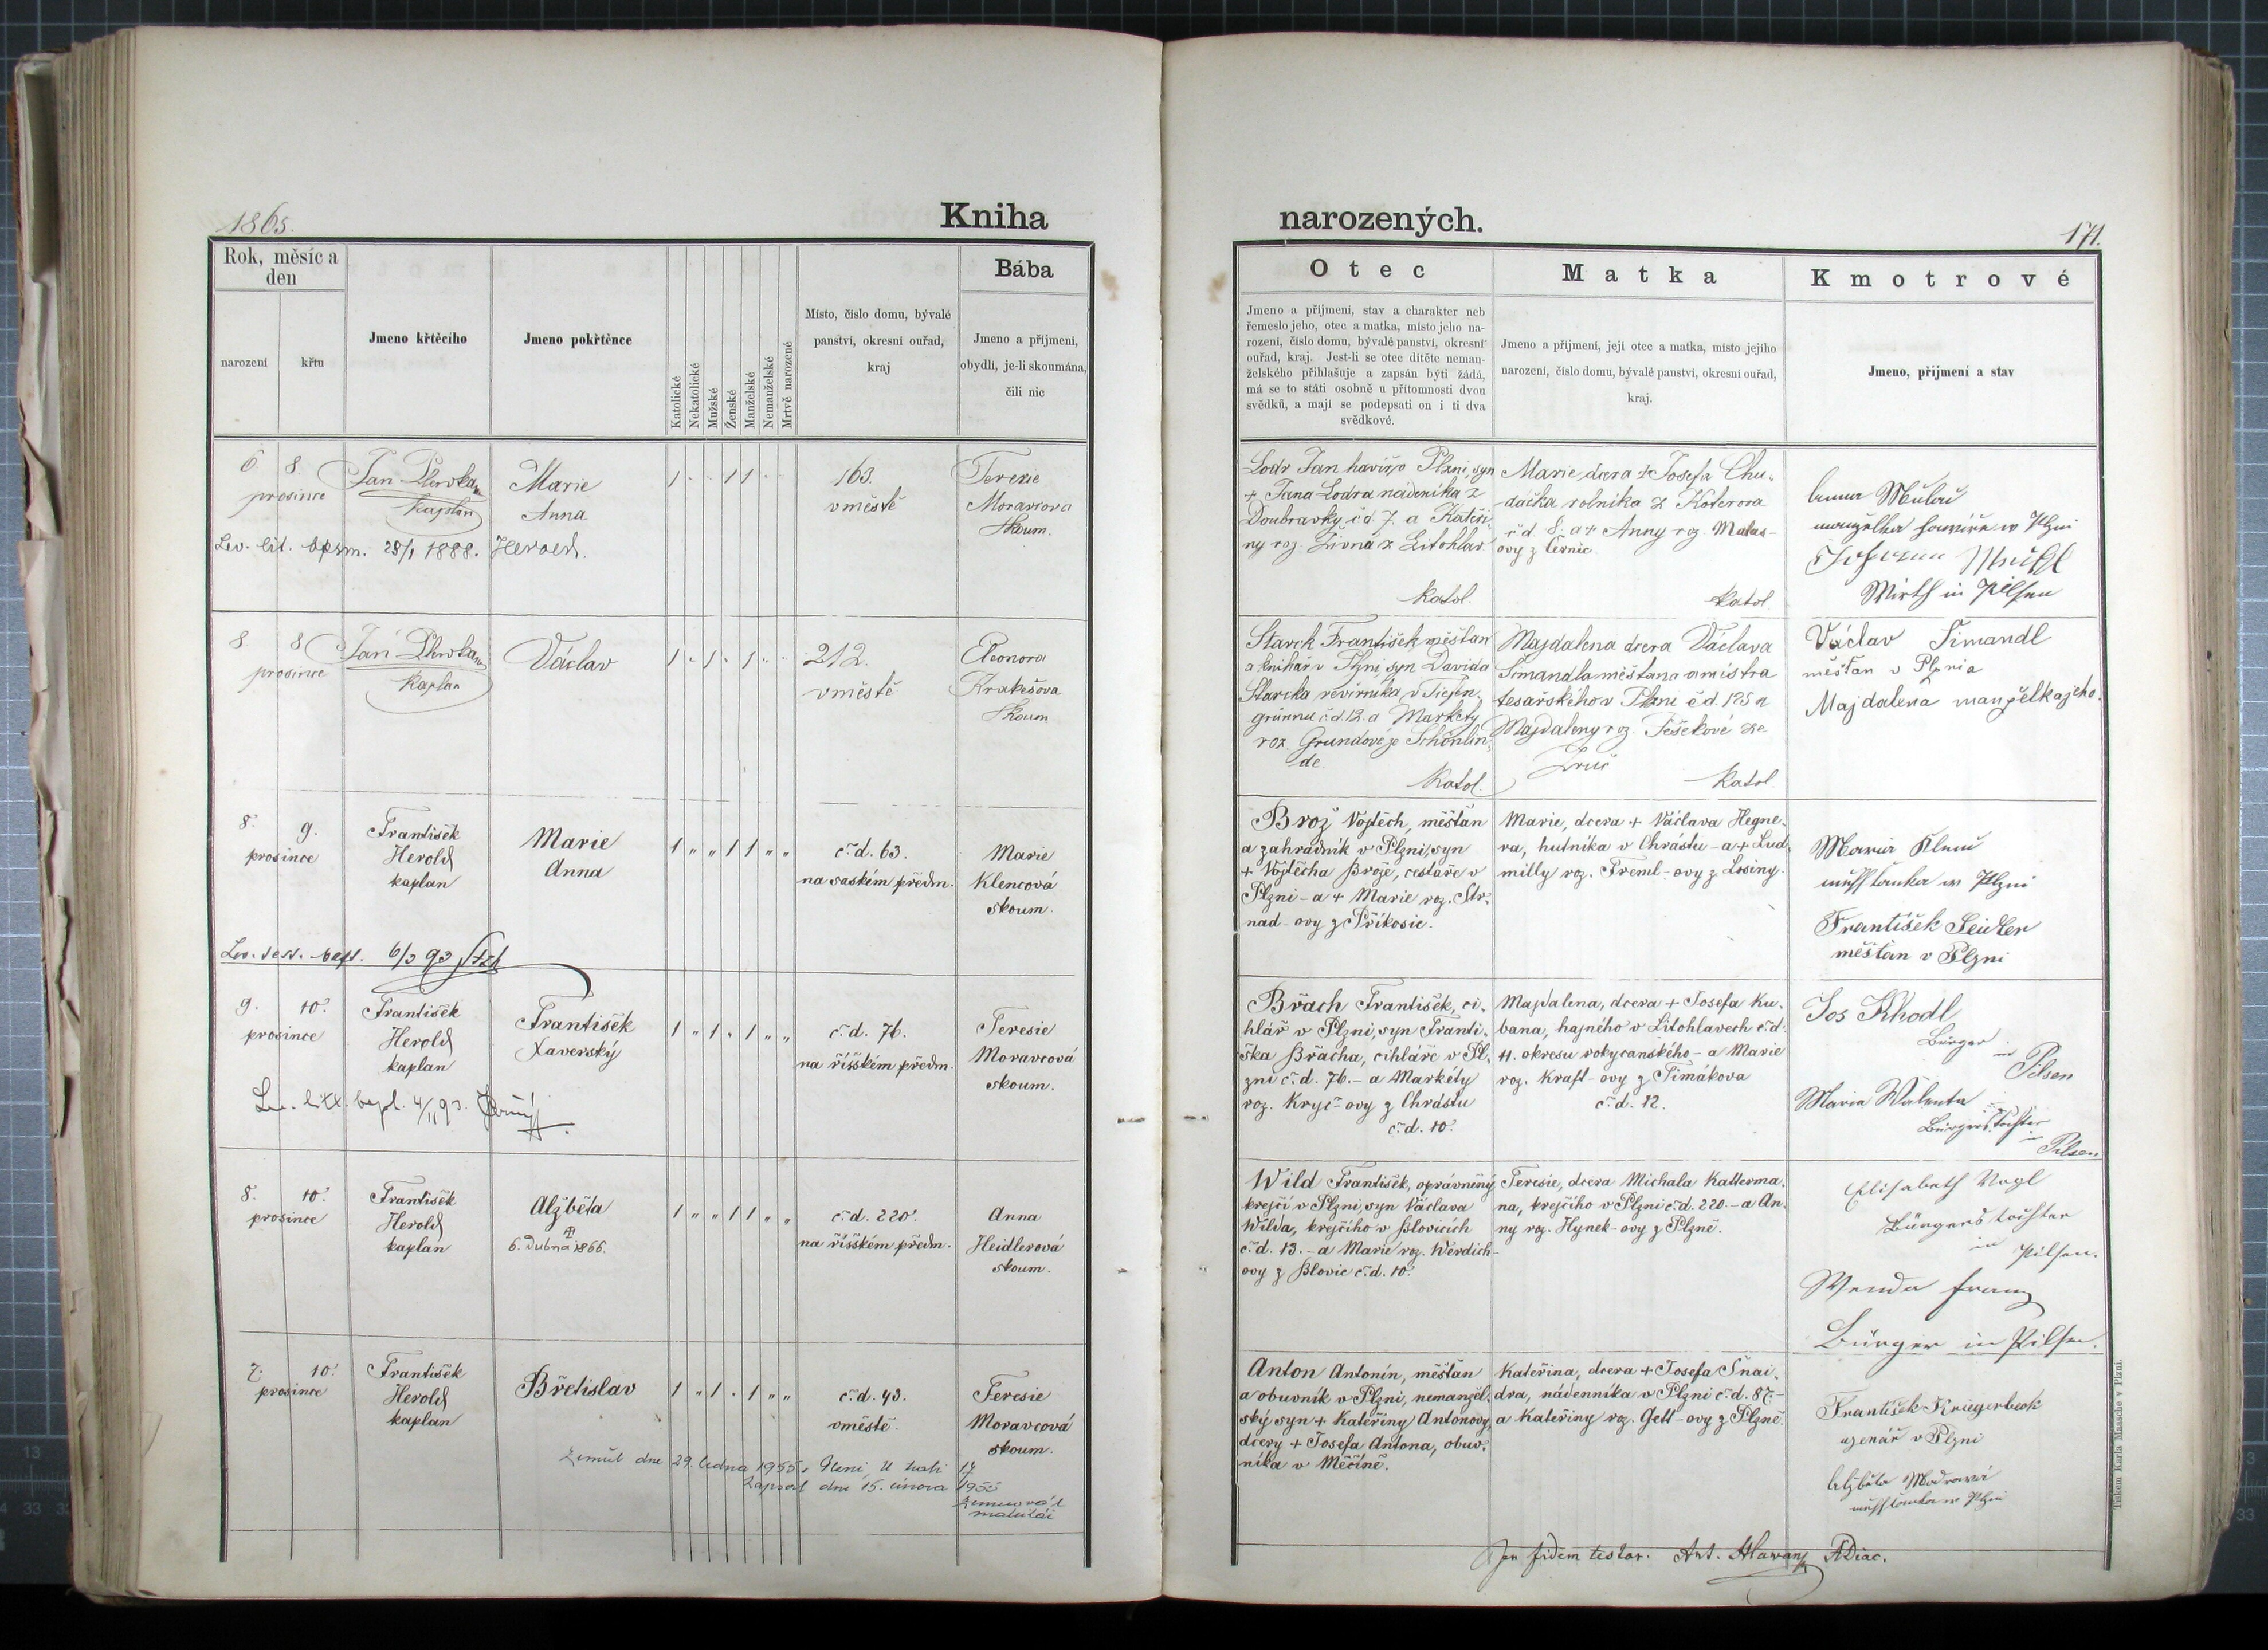 1865.
Kniha
Rok, měsíc a
den
narození
křtu
Jmeno křtěcího
Jmeno pokřtěnce
Katolické
Nekatolické
Mužské
Ženské
Manželské
Nemanželské
Mrtvě narozené
Místo, číslo domu, bývalé
panství, okresní ouřad,
kraj
Bába
Jmeno a příjmení,
obydlí, je-li skoumána,
čili nic
6 8
prosince
Jan
kaplan
Marie
Anna
1 " " 1 1 " "
163.
v městě
Terezie
Moravcova
skoum.
Lev. lit. bpsm. 28/1 1888. Herold.
8 8
prosince
Jan
Kaplan
Václav
1 " 1 " 1 " "
212.
v městě
Eleonora
Krakešova
skoum
8. 9.
prosince
František
Herold
kaplan
Marie
Anna
1 " " 1 1 " "
č. d. 63.
na saském předm.
Marie
Klencová
skoum.
Lev. test. bapt. 6/3 93
9. 10.
prosince
František
Herold
kaplan
František
Xaverský
1 " 1 " 1 " "
č. d. 76.
na říšském předm.
Teresie
Moravcová
skoum.
Lev. litt. bapt. 4/11 93.
8. 10.
prosince
František
Herold
kaplan
Alžběta
6. dubna 1866.
1 " " 1 1 " "
č. d. 220.
na říšském předm.
Anna
Heidlerová
skoum.
7. 10.
prosince
František
Herold
kaplan
Břetislav
1 " 1 " 1 " "
č. d. 43.
v městě.
Teresie
Moravcová
skoum.
Zemřel dne 29. ledna 1955 v Plzni, U trati 17
Zapsal dne 15. února 1955
matrikář
narozených.
171.
Otec
Jmeno a příjmení, stav a charakter neb
řemeslo jeho, otec a matka, místo jeho na-
rození, číslo domu, bývalé panství, okresní
ouřad, kraj. Jest-li se otec dítěte neman-
želského přihlašuje a zapsán býti žádá,
má se to státi osobně u přítomnosti dvou
svědků, a mají se podepsati on i ti dva
svědkové.
Matka
Jmeno a příjmení, její otec a matka, místo jejího
narození, číslo domu, bývalé panství, okresní ouřad,
kraj.
Kmotrové
Jmeno, příjmení a stav
Lodr Jan havíř v Plzni, syn
+ Jana Lodra nádeníka z
Doubravky č d 7. a Kateři-
ny roz. Živná z Litohlav
katol.
Marie dcera + Josefa Chu-
dáčka rolníka z Koterova
č d. 8. a + Anny roz. Malas-
ovy z Černic.
katol.
Anna
manželka havíře w Plzni
Johann
Wirth in Pilsen
Starck František měšťan
a knihař v Plzni, syn Davida
Starcka revírníka v Tiefen-
grünnu č d 12. a Markéty
roz. Grundové ze Schönlin-
de.
Katol.
Majdalena dcera Václava
Šimandla měšťana a mistra
tesařského v Plzni č d. 125 a
Majdaleny roz. Fešekové ze
katol.
Václav Šimandl
měšťan v Plzni a
Majdalena manželka jeho.
Brož Vojtěch, měšťan
a zahradník v Plzni, syn
+ Vojtěcha Brože, cestáře v
Plzni - a + Marie roz. Str-
nad-ovy z Příkosic.
Marie, dcera + Václava Hegne-
ra, hutníka v Chrástu - a + Lud-
milly roz. Treml-ovy z Losiny.
Maria
měšťanka w Plzni
František Seidler
měšťan v Plzni
Břach František, ci-
hlář v Plzni, syn Franti-
ška Břacha, cihláře v Pl-
zni č. d. 76. - a Markéty
roz. Kryč-ovy z Chrástu
č. d. 10.
Majdalena, dcera + Josefa Ku-
bana, hajného v Litohlavech č. d.
41. okresu rokycanského - a Marie
roz. Kraft-ovy z Timákova
č. d. 12.
Jos Khodl
Bürger
in
Pilsen
Maria Walenta
Bürgerstochter
in
Pilsen
Wild František, oprávněný
krejčí v Plzni, syn Václava
Wilda, krejčího v Blovicích
č. d. 13. - a Marie roz. Werdich-
ovy z Blovic č. d. 10.
Teresie, dcera Michala Katterma-
na, krejčího v Plzni č. d. 220. - a An-
ny roz. Hynek-ovy z Plzně.
Elisabeth Vogl
Bürgerstochter
in
Pilsen.
Wenda Franz
Bürger in Pilsen.
Anton Antonín, měšťan
a obuvník v Plzni, nemanžel-
ský syn + Kateřiny Antonovy,
dcery + Josefa Antona, obuv-
níka v Měčíně.
Kateřina, dcera + Josefa Šnai-
dra, nádenníka v Plzni č. d. 87. -
a Kateřiny roz. Gett-ovy z Plzně.
František Kriegerbeck
uzenář v Plzni
Alžběta
měšťanka w Plzni
Tiskem Karla Maasche v Plzni.
fidem testor. Ant. Hlawan